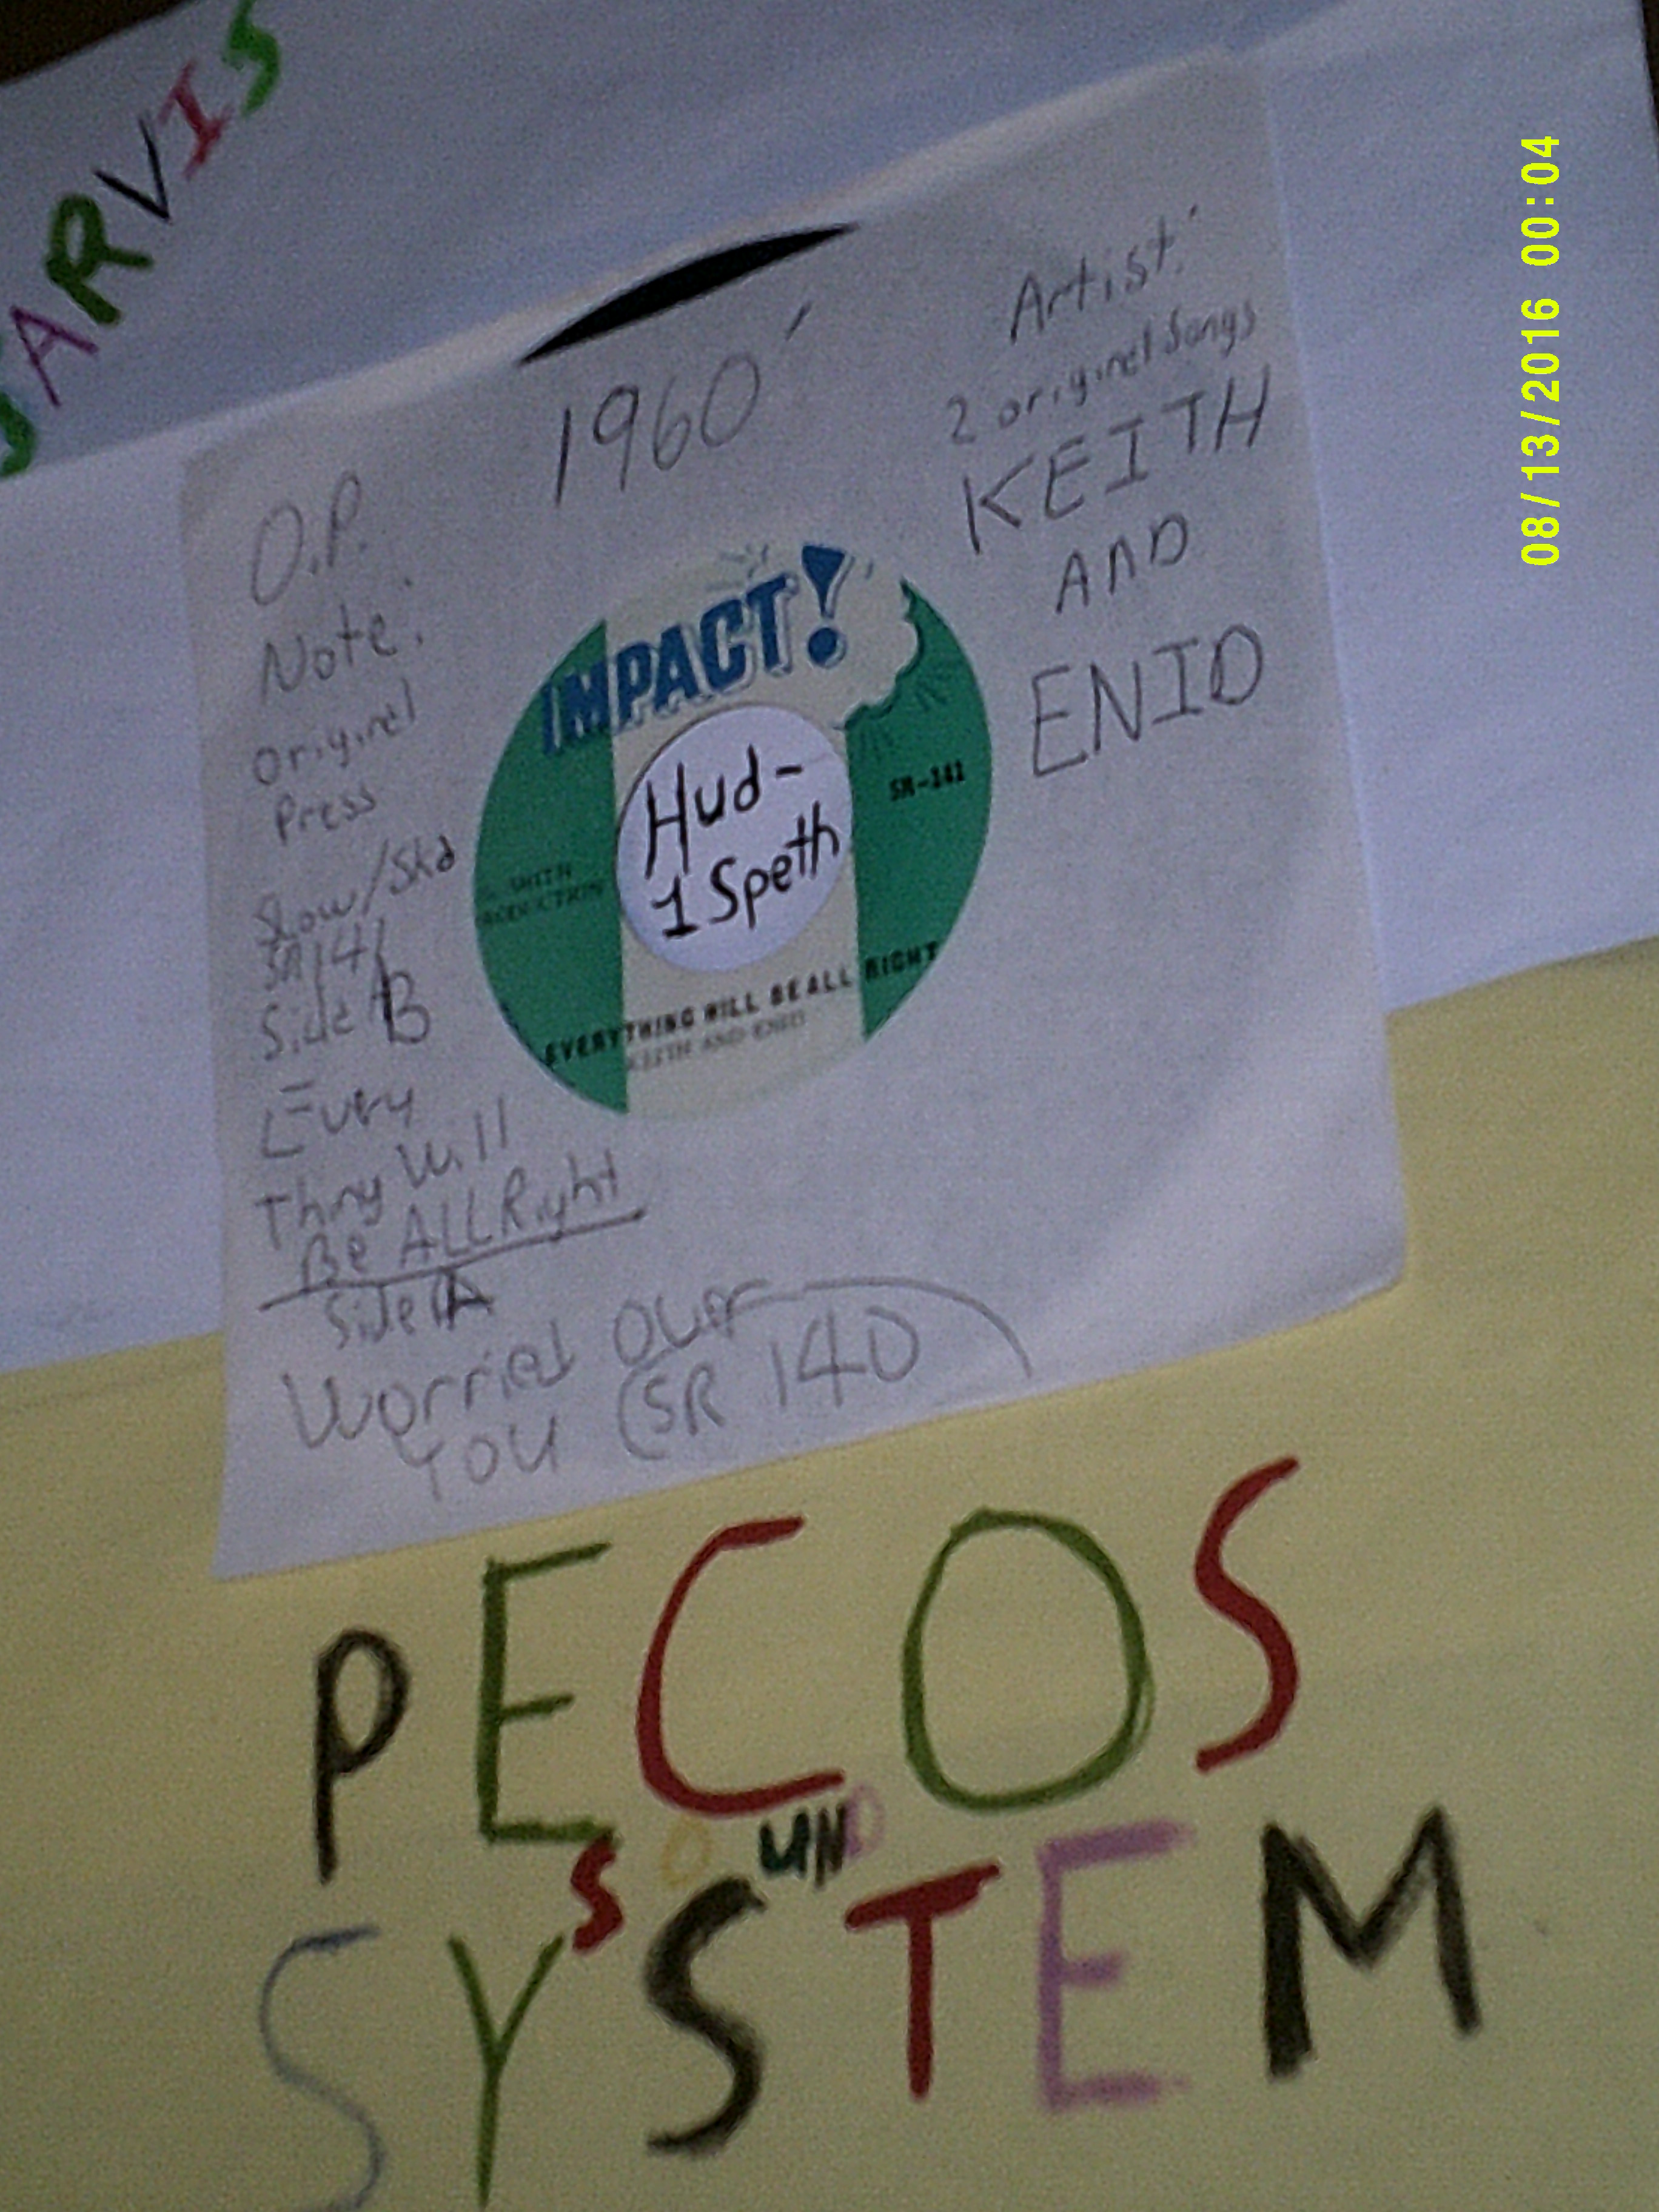 SARVIS
08/13/2016 00:04
1960'
Artist:
2 original Songs
KEITH
AND
ENID
O.P.
Note:
Original
Press
Slow/Ska
SR141
Side B
Every
Thing Will
Be ALL Right
Side A
Worried Over
YOU (SR 140)
IMPACT!
SR-141
SMITH
Hud-
1 Speth
EVERYTHING WILL BE ALL RIGHT
KEITH AND ENID
PECOS
SOUND
SYSTEM